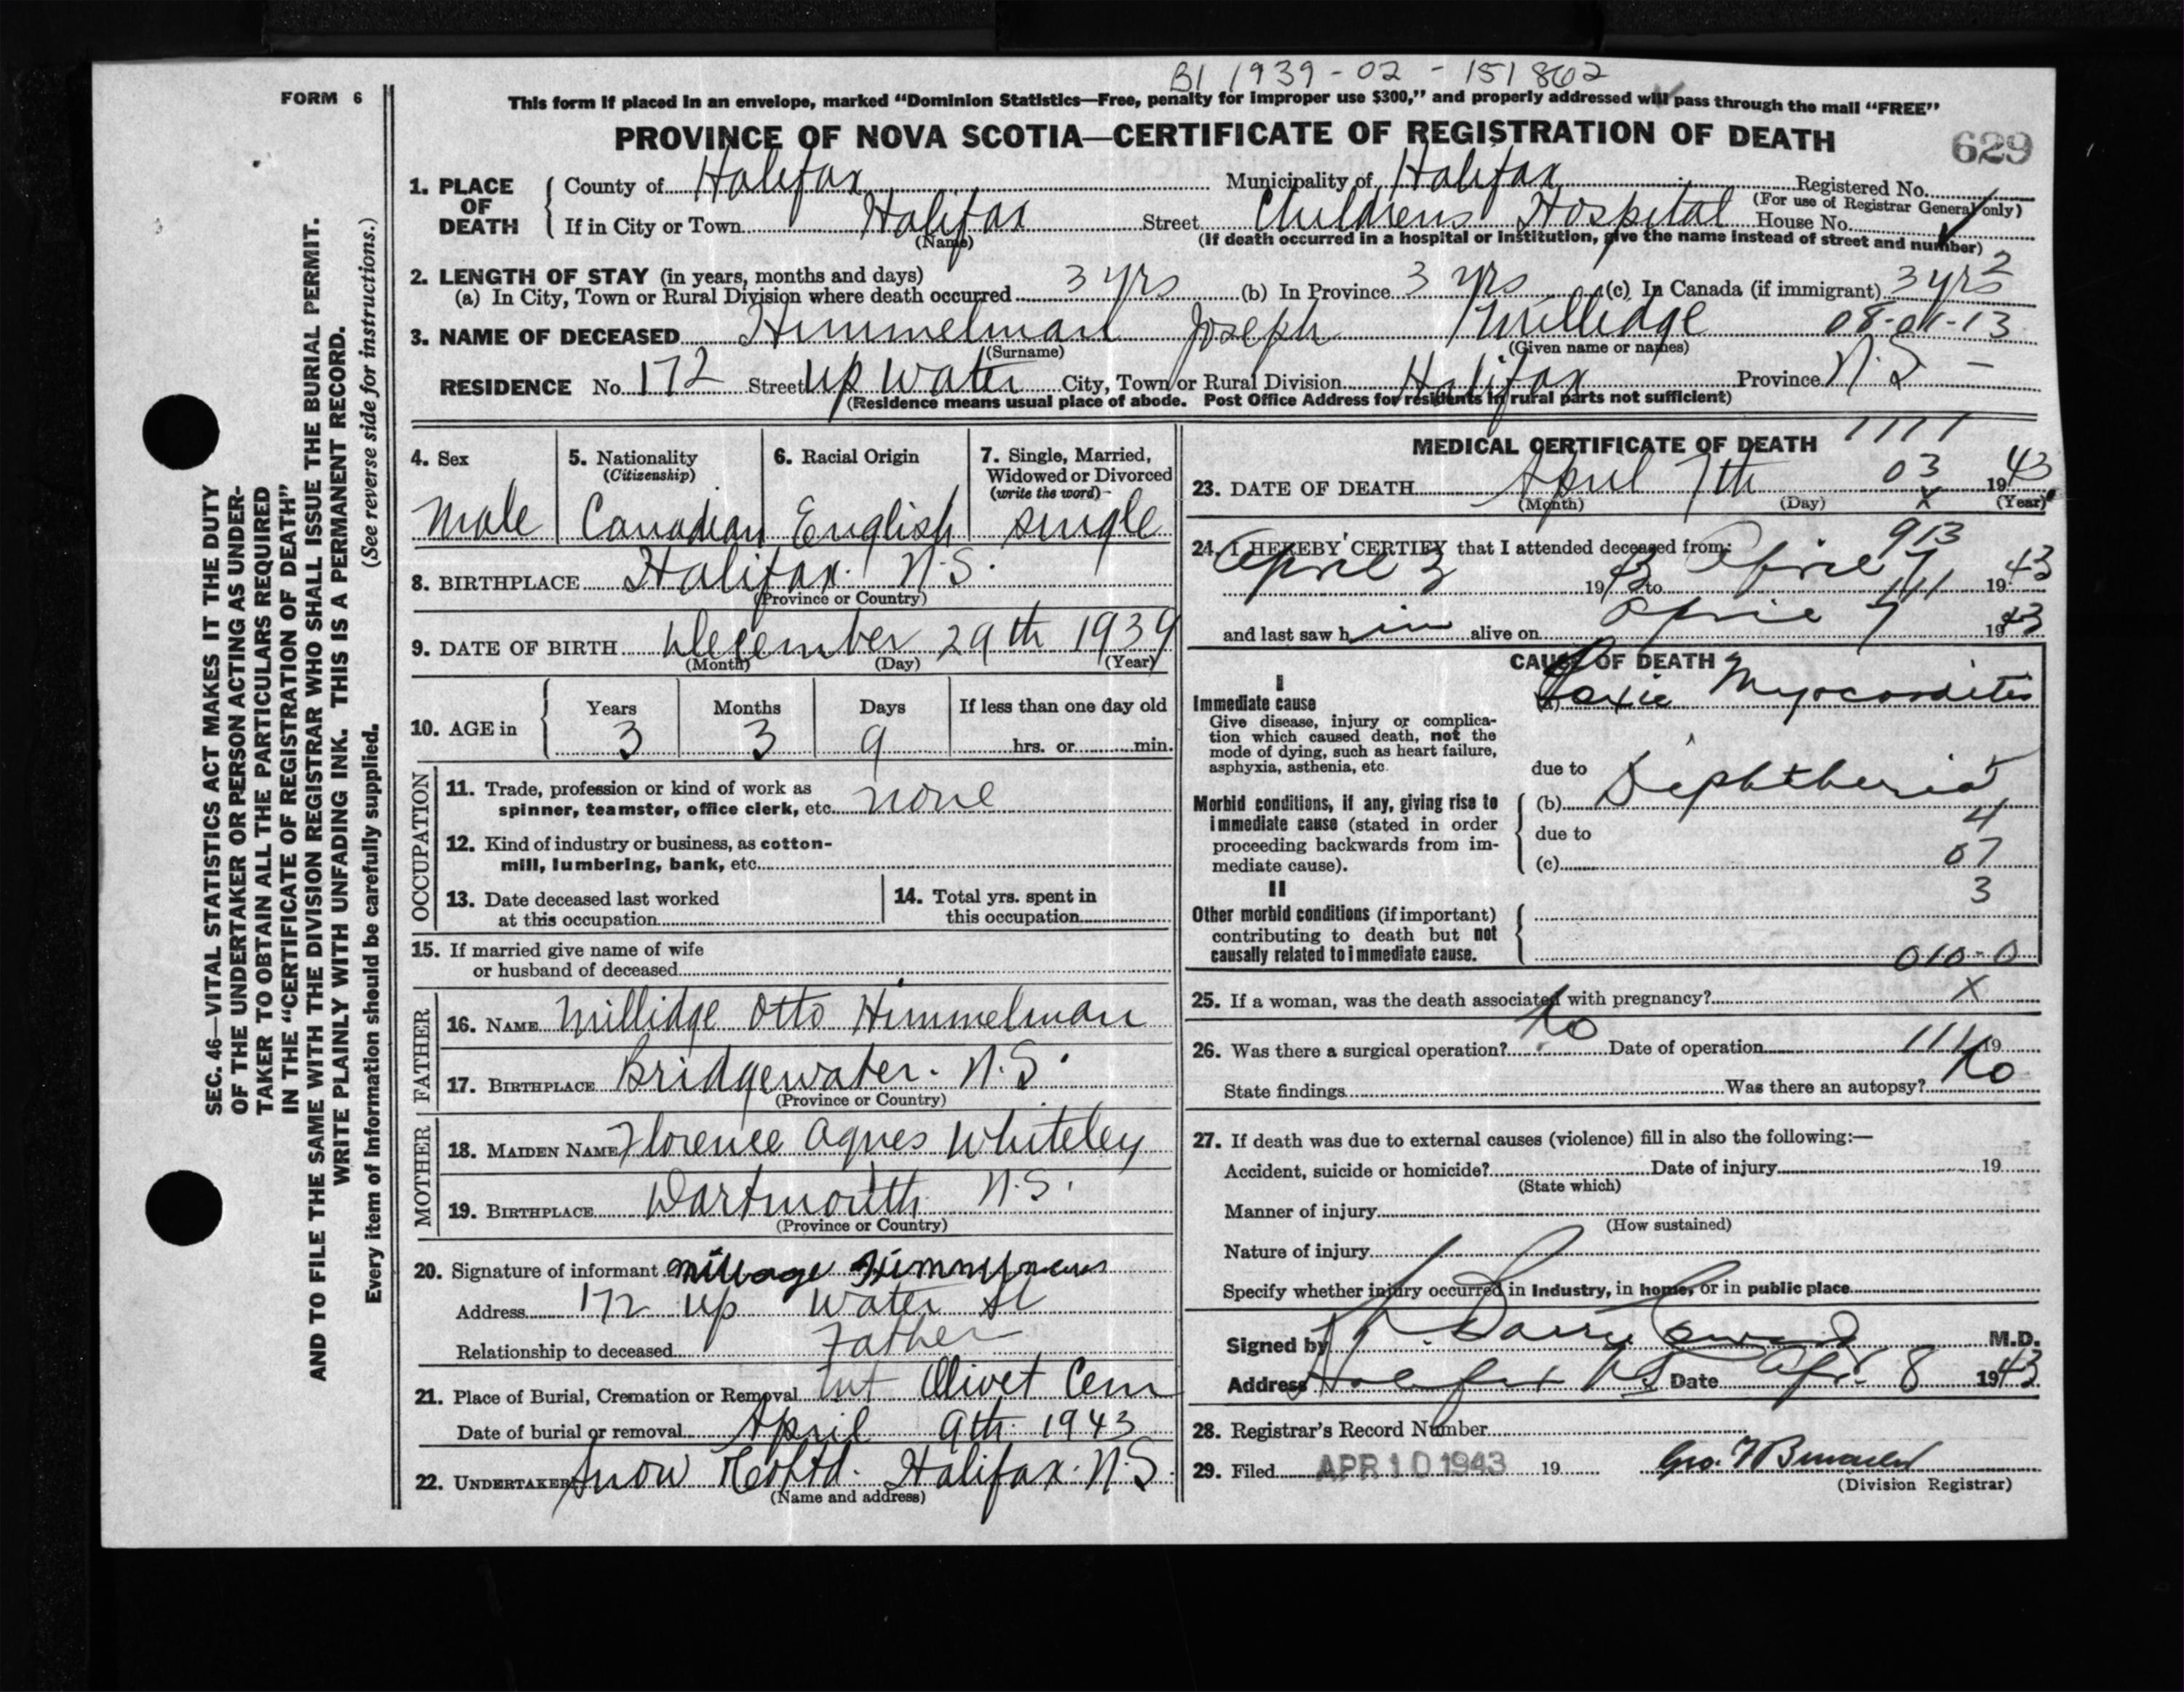 B1 1939-02-151862
FORM 6
This form if placed in an envelope, marked “Dominion Statistics—Free, penalty for improper use $300,” and properly addressed will pass through the mail “FREE”
PROVINCE OF NOVA SCOTIA—CERTIFICATE OF REGISTRATION OF DEATH
629
1. PLACE OF DEATH
County of Halifax Municipality of Halifax Registered No.
(For use of Registrar General only)
If in City or Town Halifax Street Childrens Hospital House No.
(Name) (If death occurred in a hospital or institution, give the name instead of street and number)
2. LENGTH OF STAY (in years, months and days) 2
(a) In City, Town or Rural Division where death occurred 3 yrs (b) In Province 3 yrs (c) In Canada (if immigrant) 3 yrs
3. NAME OF DECEASED Himmelman Joseph Millidge 08-01-13
(Surname) (Given name or names)
RESIDENCE No. 172 Street Up Water City, Town or Rural Division Halifax Province N.S —
(Residence means usual place of abode. Post Office Address for residents in rural parts not sufficient)
4. Sex
Male
5. Nationality
(Citizenship)
Canadian
6. Racial Origin
English
7. Single, Married,
Widowed or Divorced
(write the word)
single
8. BIRTHPLACE Halifax. N.S.
(Province or Country)
9. DATE OF BIRTH December 29th 1939
(Month) (Day) (Year)
10. AGE in
Years Months Days If less than one day old
3 3 9 hrs. or min.
OCCUPATION
11. Trade, profession or kind of work as
spinner, teamster, office clerk, etc. none
12. Kind of industry or business, as cotton-
mill, lumbering, bank, etc.
13. Date deceased last worked
at this occupation
14. Total yrs. spent in
this occupation
15. If married give name of wife
or husband of deceased
FATHER
16. NAME Millidge Otto Himmelman
17. BIRTHPLACE Bridgewater. N.S.
(Province or Country)
MOTHER
18. MAIDEN NAME Florence Agnes Whiteley
19. BIRTHPLACE Dartmouth N.S.
(Province or Country)
20. Signature of informant
Address 172 Up Water St
Relationship to deceased Father
21. Place of Burial, Cremation or Removal Mt Olivet Cem
Date of burial or removal April 9th 1943
22. UNDERTAKER Snow & Co Ltd. Halifax. N.S.
(Name and address)
MEDICAL CERTIFICATE OF DEATH 1111
23. DATE OF DEATH April 7th 03 1943
(Month) (Day) X (Year)
24. I HEREBY CERTIFY that I attended deceased from: 913
April 3 1943 to April 7 111 1943
and last saw h im alive on April 7 1943
CAUSE OF DEATH
I
Immediate cause
Give disease, injury or complica-
tion which caused death, not the
mode of dying, such as heart failure,
asphyxia, asthenia, etc.
(a) Toxic Myocarditis
due to
Morbid conditions, if any, giving rise to
immediate cause (stated in order
proceeding backwards from im-
mediate cause).
(b) Diphtheria
4
due to
(c) 07
II
3
Other morbid conditions (if important)
contributing to death but not
causally related to immediate cause.
010-0
25. If a woman, was the death associated with pregnancy? X
26. Was there a surgical operation? No Date of operation 111 19
State findings Was there an autopsy? No
27. If death was due to external causes (violence) fill in also the following:—
Accident, suicide or homicide? Date of injury 19
(State which)
Manner of injury
(How sustained)
Nature of injury
Specify whether injury occurred in Industry, in home, or in public place
Signed by M.D.
Address Halifax NS Date Apr. 8 1943
28. Registrar’s Record Number
29. Filed APR 10 1943 19
(Division Registrar)
SEC. 46—VITAL STATISTICS ACT MAKES IT THE DUTY
OF THE UNDERTAKER OR PERSON ACTING AS UNDER-
TAKER TO OBTAIN ALL THE PARTICULARS REQUIRED
IN THE “CERTIFICATE OF REGISTRATION OF DEATH”
AND TO FILE THE SAME WITH THE DIVISION REGISTRAR WHO SHALL ISSUE THE BURIAL PERMIT.
WRITE PLAINLY WITH UNFADING INK. THIS IS A PERMANENT RECORD.
Every item of information should be carefully supplied. (See reverse side for instructions.)